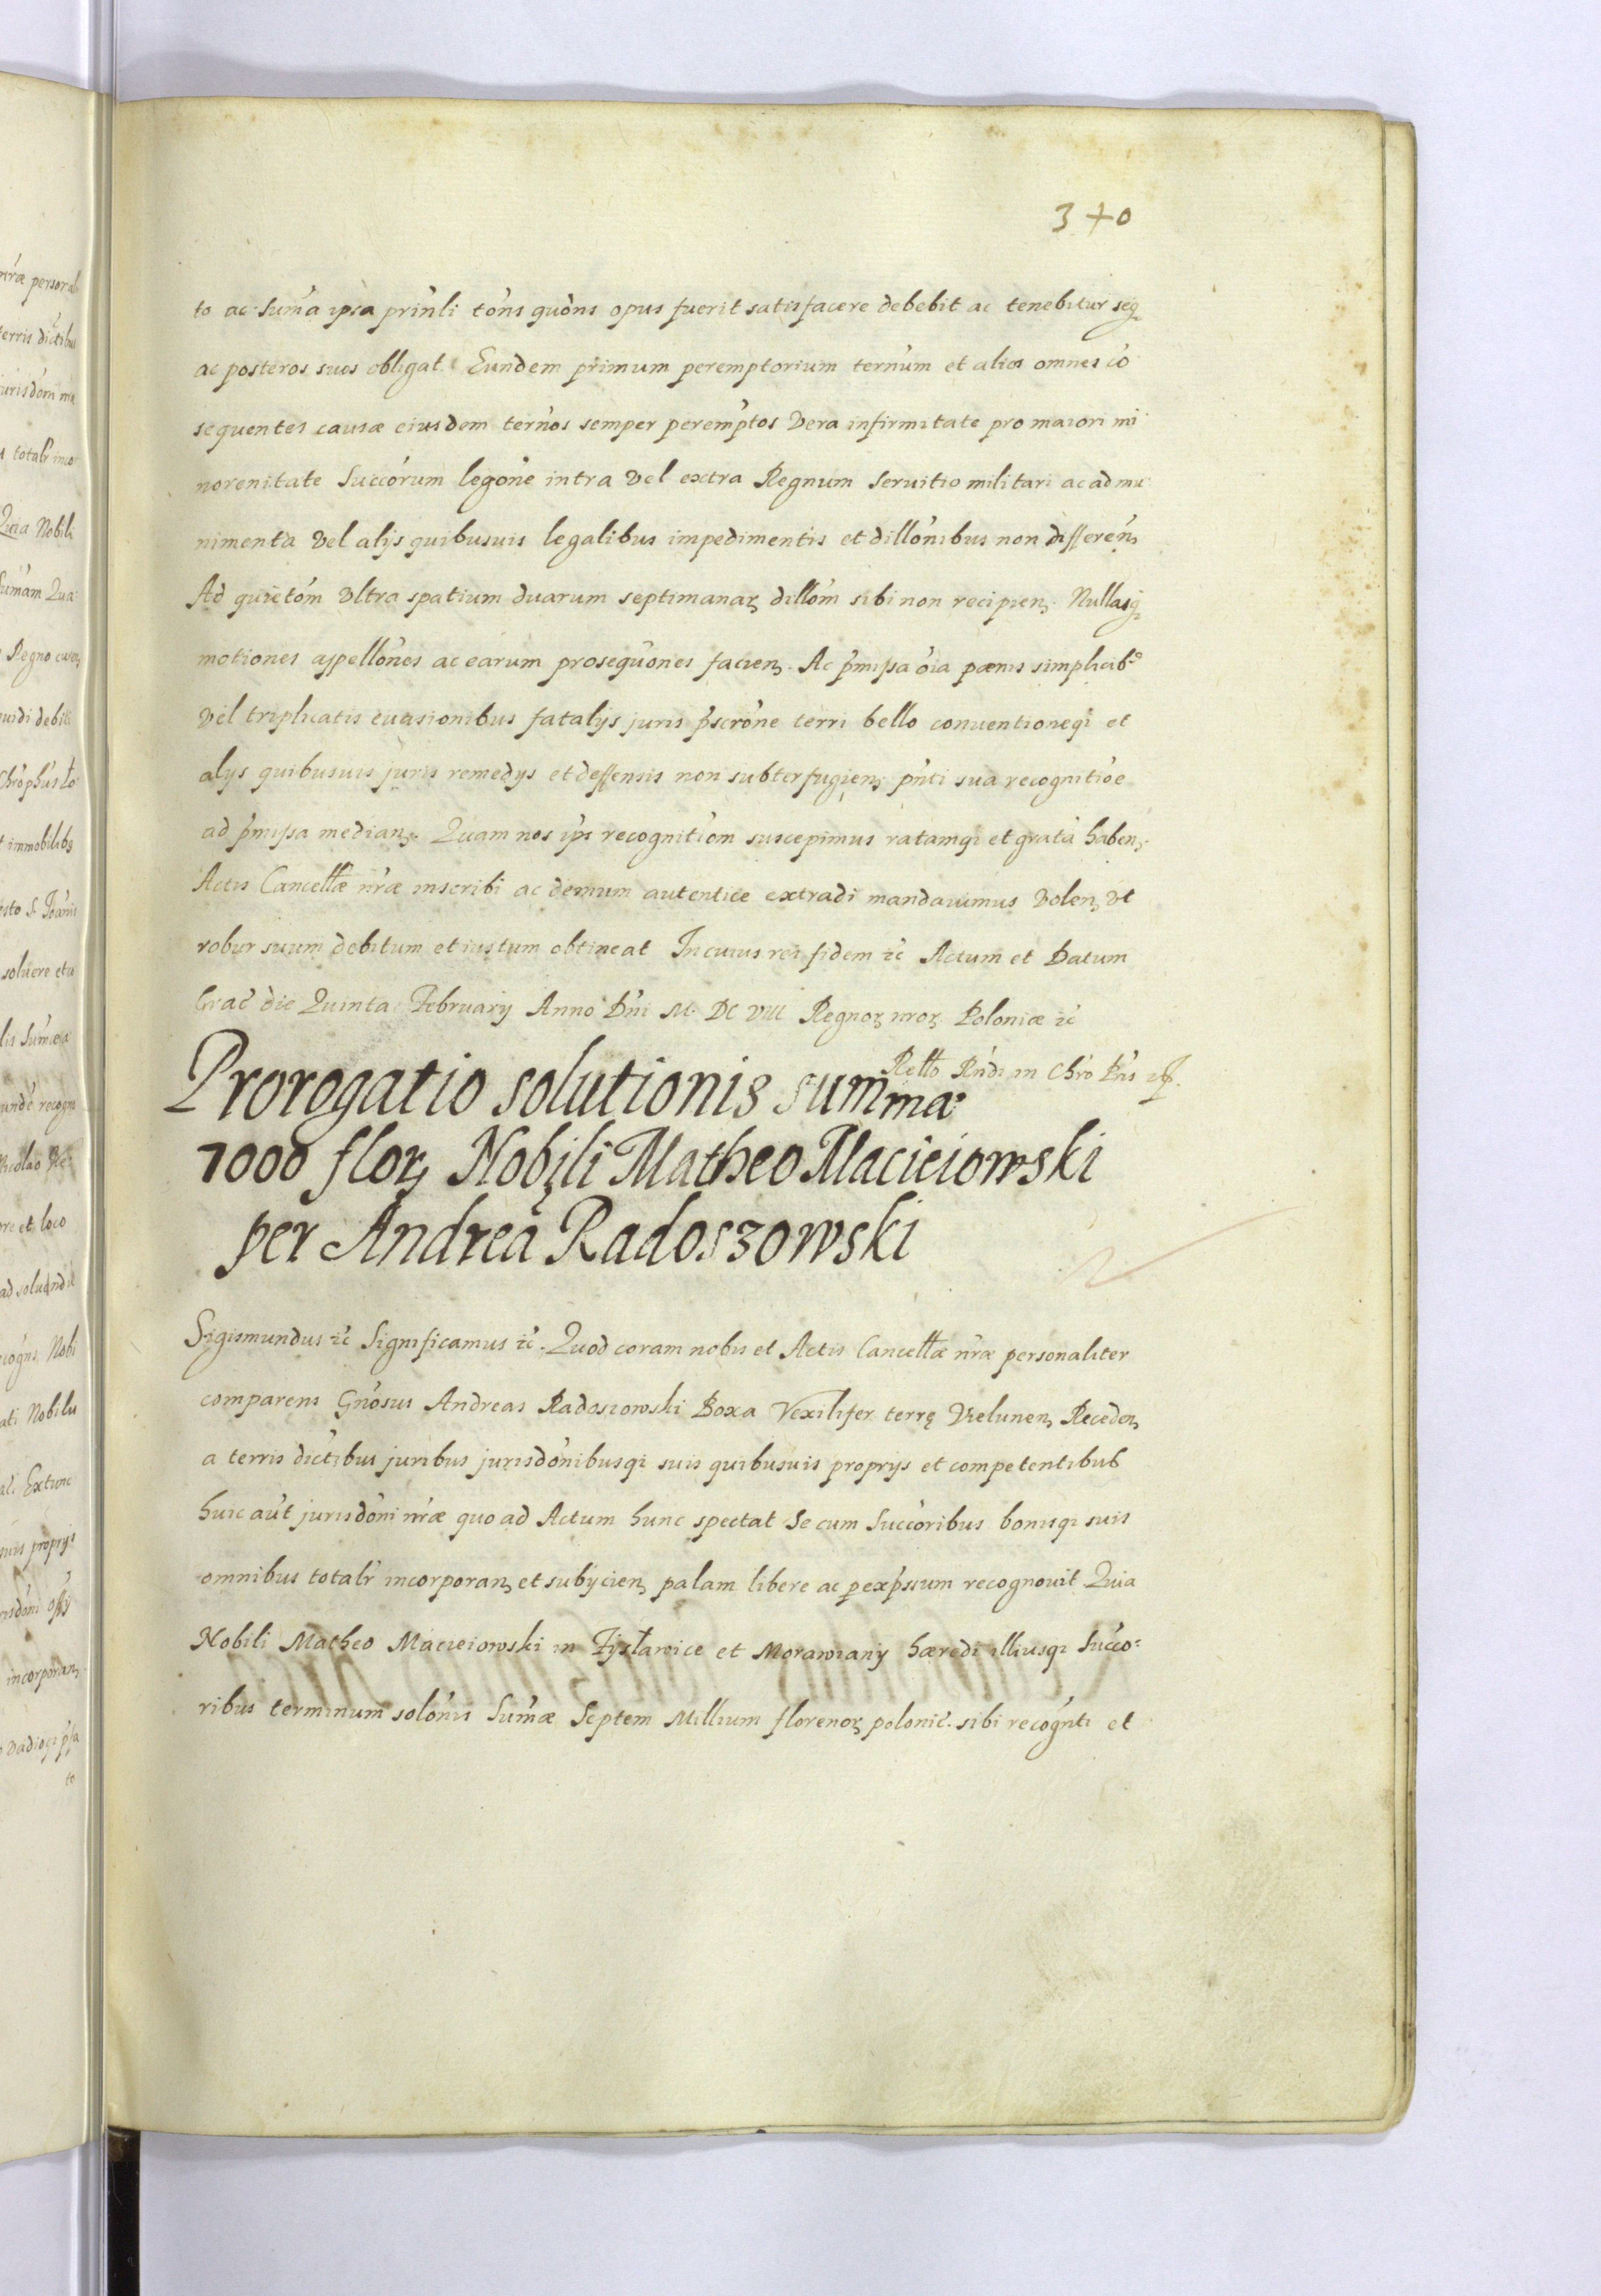 370
to ac sum̃a ipsa prinl̃i tõns quõns opus fuerit satisfacere debebit ac tenebitur seq̃
ac posteros suos obligat. Eundem primum peremptorium terñum et alios omnes cõ
sequentes causæ eiusdem terños semper peremp̃tos vera infirmitate pro maiori mi
norenitate succõrum legõne intra vel extra Regnum seruitio militari ac ad mu
nimenta vel alijs quibusuis legalibus impedimentis et dill̃onibus non differeñ
Ad quietõm vltra spatium duarum septimanaꝝ dillõm sibi non recipienꝫ. Nullasqꝫ
motiones appellõnes ac earum prosequõnes facienꝫ. Ac p̃missa õia pœnis simplicibꝰ
vel triplicatis euasionibus fatalijs juris p̃scrõne terri bello conuentioneqꝫ et
alijs quibusuis juris remedijs et deffensis non subterfugienꝫ pñti sua recognitiõe
ad p̃missa medianꝫ. Quam nos ip̃s recognitiõm suscepimus ratamqꝫ et gratã habenꝫ.
Actis Cancellæ ñræ inscribi ac demum autentice extradi mandauimus volenꝫ vt
robur suum debitum et iustum obtineat In cuius rei fidem ꝛc̃ Actum et Datum
Crac̃ die Quinta February Anno Dñi M. DC VIII Regnoꝝ nroꝝ Poloniæ ꝛc̃
Rell̃o Rñdi in Chrõ Pñs
Prorogatio solutionis summa:
7000 floꝝ Nobili Matheo Macieiowski
per Andreã Radoszowski
Sigismundus ꝛc̃ Significamus ꝛc̃. Quod coram nobis et Actis Cancellæ ñræ personaliter
comparens Gñosus Andreas Radoszowski Boxa Vexilifer terrę Vielunenꝫ Recedenꝫ
a terris dictĩbus juribus jurisdõnibusqꝫ suis quibusuis proprijs et competentibus
huic aũt jurisdõni ñræ quo ad Actum hunc spectat se cum succõribus bonisqꝫ suis
omnibus totalr̃ incorporanꝫ et subijcienꝫ palam libere ac ꝑexp̃ssum recognouit Quia
Nobili Matheo Macieiowski in Fijsławice et Morawiany hæredi illiusqꝫ succo:
ribus terminum solõnis Sum̃æ Septem Millium florenoꝝ polonic̃. sibi recogñti et